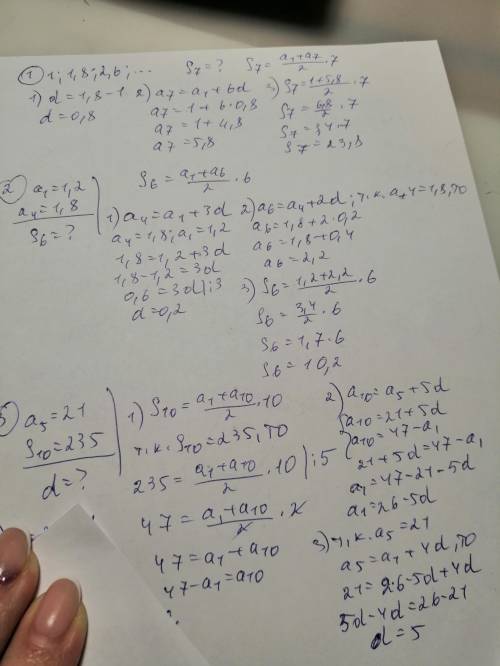 ① 1; 1,8; 2,6; ... S7 = ? S7 = (a1+a7)/2 · 7
1) d = 1,8 - 1
d = 0,8
2) a7 = a1 + 6d
a7 = 1 + 6 · 0,8
a7 = 1 + 4,8
a7 = 5,8
3) S7 = (1+5,8)/2 · 7
S7 = 6,8/2 · 7
S7 = 3,4 · 7
S7 = 23,8
② a1 = 1,2
a4 = 1,8
S6 = ?
S6 = (a1+a6)/2 · 6
1) a4 = a1 + 3d
a4 = 1,8; a1 = 1,2
1,8 = 1,2 + 3d
1,8 - 1,2 = 3d
0,6 = 3d | :3
d = 0,2
2) a6 = a4 + 2d; т.к. a4 = 1,8, то
a6 = 1,8 + 2 · 0,2
a6 = 1,8 + 0,4
a6 = 2,2
3) S6 = (1,2+2,2)/2 · 6
S6 = 3,4/2 · 6
S6 = 1,7 · 6
S6 = 10,2
a5 = 21
S10 = 235
d = ?
1) S10 = (a1+a10)/2 · 10
т.к. S10 = 235, то
235 = (a1+a10)/2 · 10 | :5
47 = (a1+a10)/2 · 2
47 = a1 + a10
47 - a1 = a10
2) a10 = a5 + 5d
a10 = 21 + 5d
a10 = 47 - a1
21 + 5d = 47 - a1
a1 = 47 - 21 - 5d
a1 = 26 - 5d
3) т.к. a5 = 21
a5 = a1 + 4d, то
21 = 26 - 5d + 4d
5d - 4d = 26 - 21
d = 5